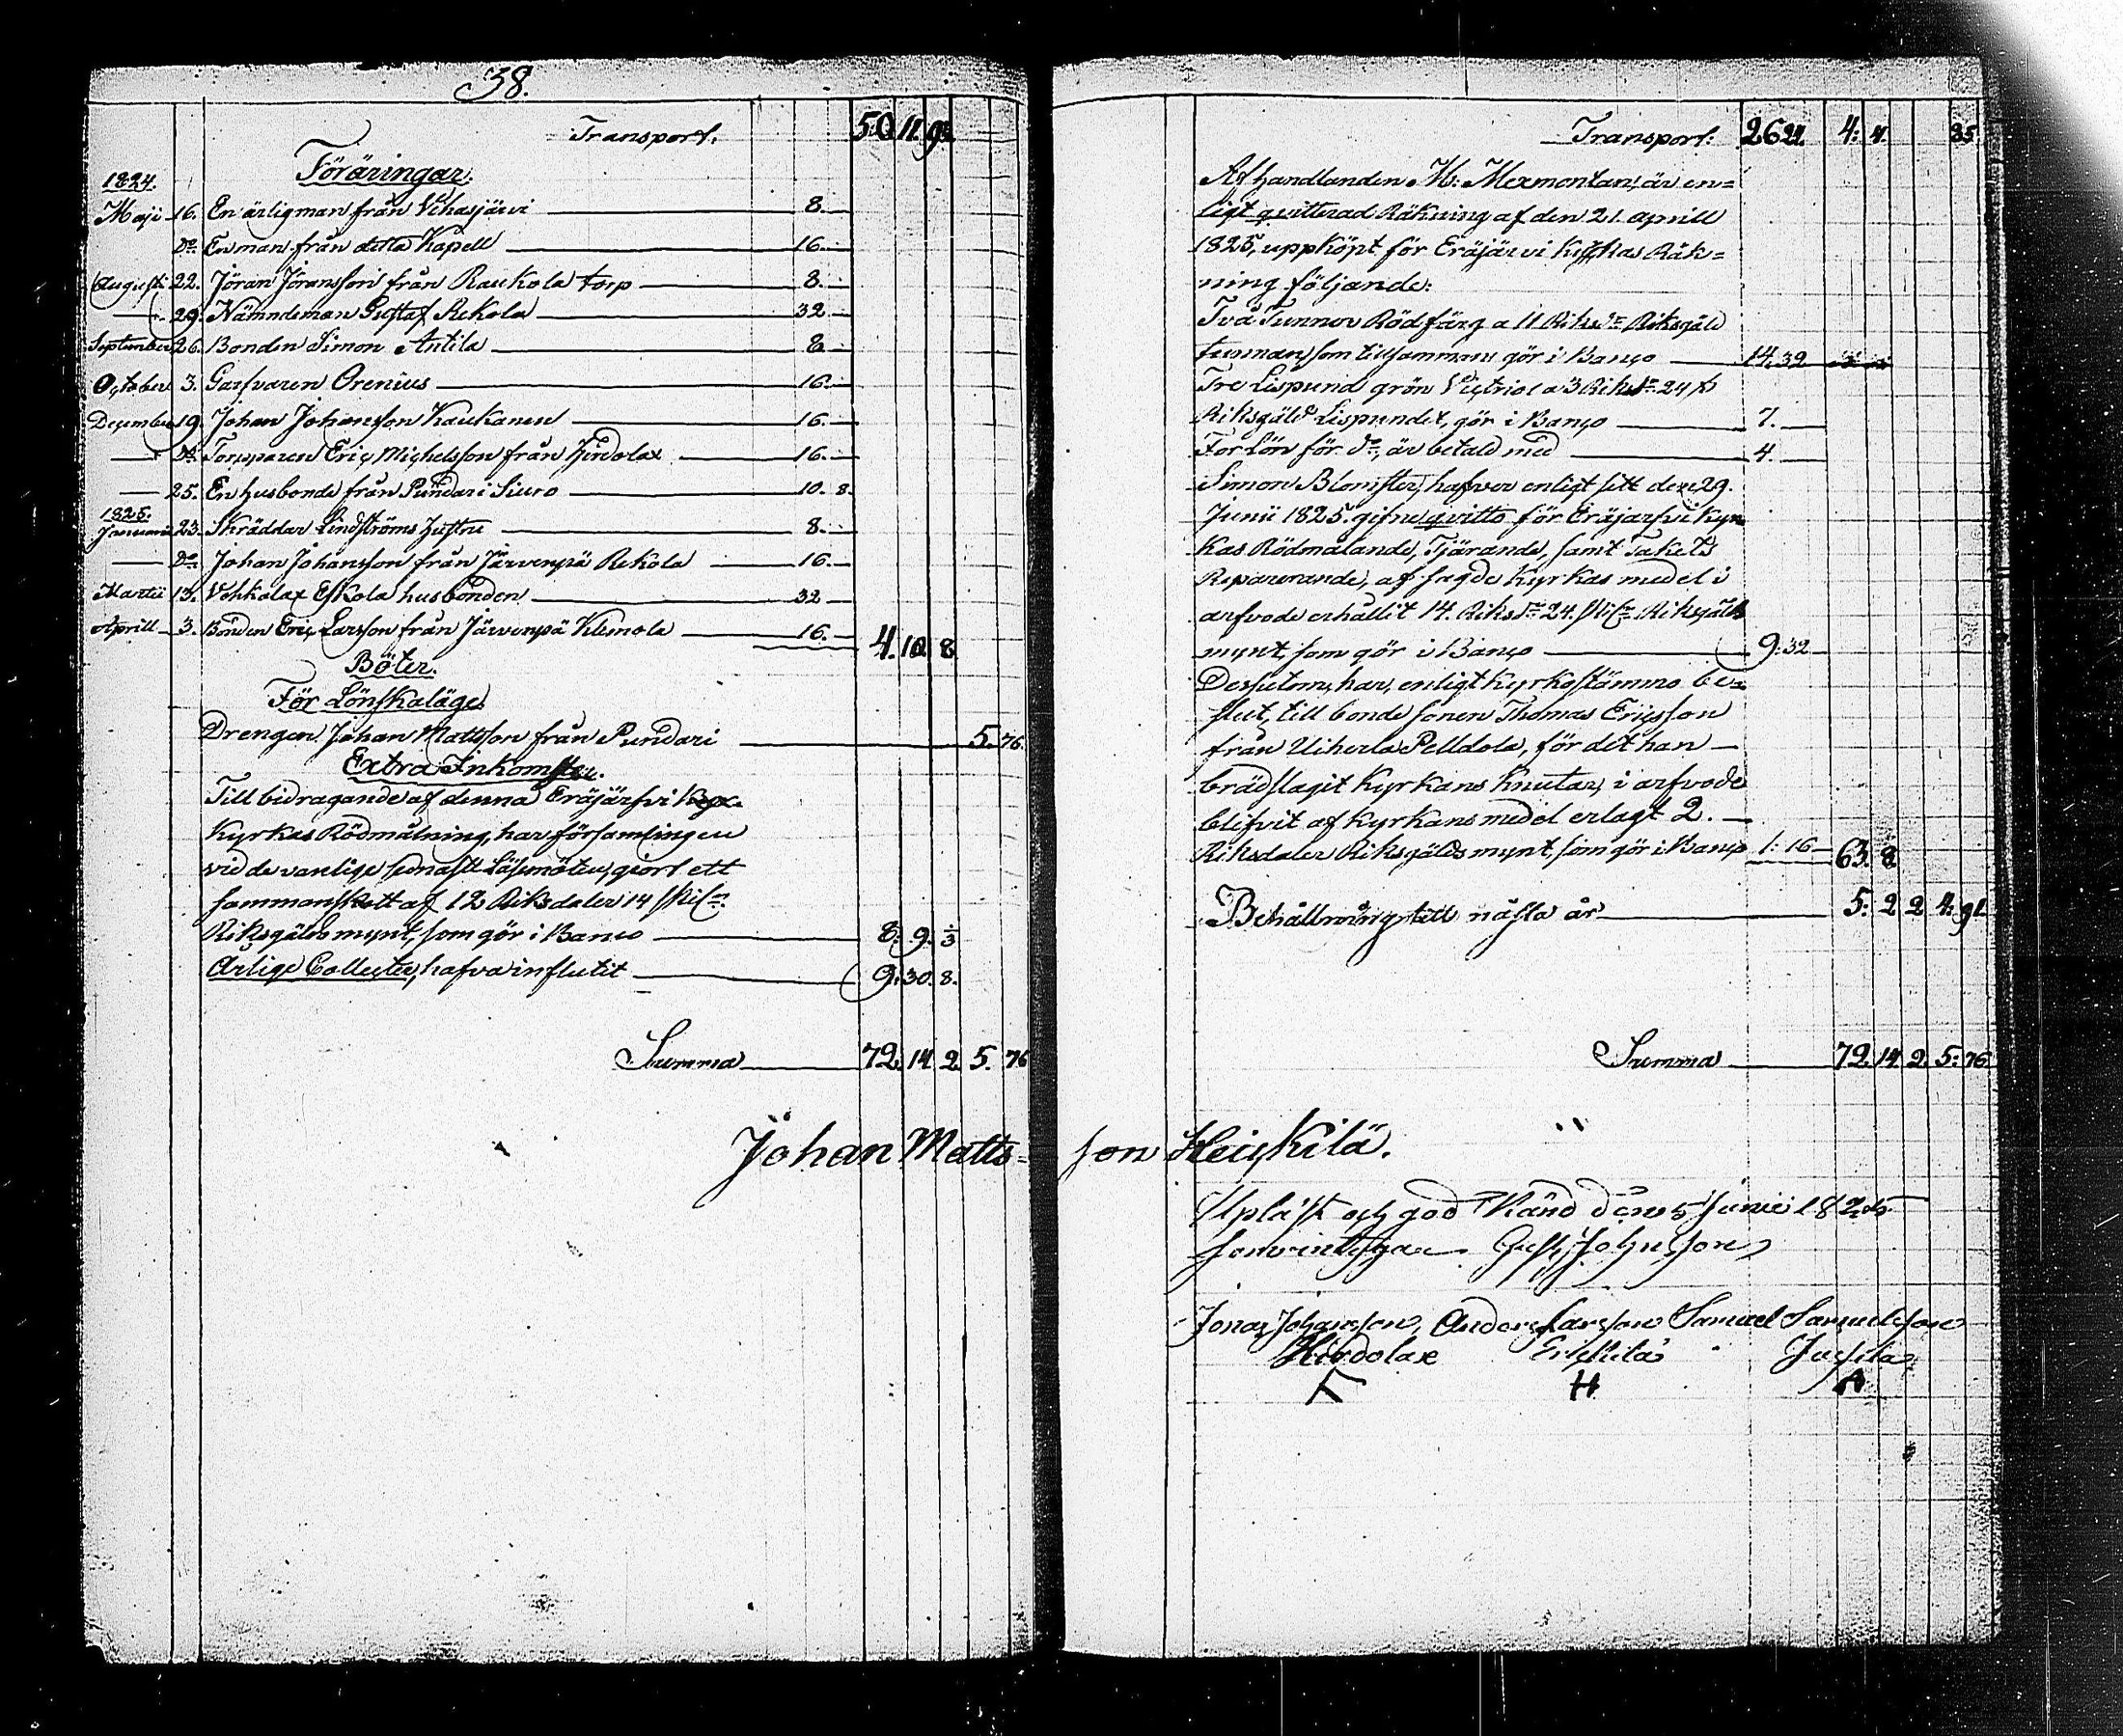 38.
Transport. 50. 11. 9.
Föräringar.
1824.
Maji 16. En ärlig man från Vihasjärvi 8.
Do En man från detta Kapell 16.
Augusti 22. Jöran Jöransson från Raukola torp 8.
29. Nämndeman Gustaf Rekola 32
September 26. Bonden Simon Antila 8
October 3. Garfvaren Orenius 16.
December 19. Johan Johansson Kaukanen 16.
Do Torpparen Eric Michelsson från Hirdolax 16.
25. En husbonde från Pundari Siuro 10. 8.
1825.
Januari 23. Skräddar Lindströms hustru 8.
Do Johan Johansson från Järvenpä Rekola 16.
Martii 13. Vehkalax Eskola husbonden 32
Aprill 3. Bonden Eric Larsson från Järvenpä Klemola 16. 4. 10. 8
Böter.
För Lönskaläge
Drengen Johan Mattsson från Pundari 5. 76.
Extra Inkomster.
Till bidragande af denna Eräjärfvi
Kyrkas Rödmålning, har församlingen
vid de vanlige senaste Läsemöten, giort ett
sammanskott af 12 Riksdaler 14 skil
Riksgälds mynt, som gör i Banco 8. 9. 1/3
Årlige Collecter, hafva influtit 9. 30. 8.
Summa 72. 14. 2. 5. 76
Transport: 26 21. 4: 4. 35
Af handlanden M: Mexmontan, är en=
ligt qvitterad Räkning af den 21. aprill
1825, uppköpt för Eräjärvi Kyrkas Räk=
ning följande:
Två Tunnor Rödfärg a 11 Riksdr Riksgäld
tunnan, som tillsammans gör i Banco 14. 32
Tre Lispund grön Victriol a 3 Riksdr 24 s
Riksgäld Lispundet, gör i Banco 7.
Forlön för do, är betald med 4.
Simon Blomster, hafver enligt sitt den 29.
Junii 1825. gifne qvitto för Eräjärfvi Kyr
kas Rödmålande, Tjärande, samt Takets
Reparerande, af sagde Kyrkas medel i
arfvode erhållit 14. Riksdr 24. skil Riksgälds
mynt, som gör i Banco 9. 32
Dessutom, har, enligt Kyrkostämmo be=
slut, till bonde sonen Thomas Ericsson
från Uiherla Pelldola, för det han
brädslagit Kyrkans Knutar, i arfvode
blifvit af Kyrkans medel erlagt 2.
Riksdaler Riksgälds mynt, som gör i Banco 1: 16 63. 8.
Behållning till nästa år 5: 2 2 4: 91
Summa 72. 14. 2. 5: 76
Johan Matts= son Heickilä.
Upläst och god känd den 5 Junii 1825
som intygar. Gust. Johnsson
Jonas Johansson, Anders Larsson Samuel Samuelsson
Hirdolax Erickilä Jussila
H
A